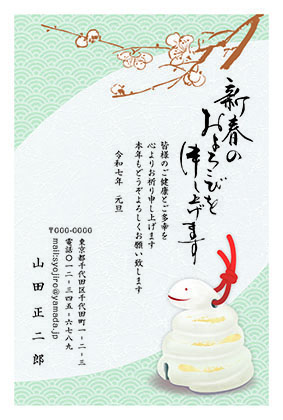 新春の
およろこびを
申し上げます
皆様のご健康とご多幸を
心よりお祈り申し上げます
本年もどうぞよろしくお願い致します
令和七年　元旦
〒000-0000
東京都千代田区千代田町一-二-三
電話〇一二-三四五-六七八九
mail:syojiro@yamada.jp
山田正二郎